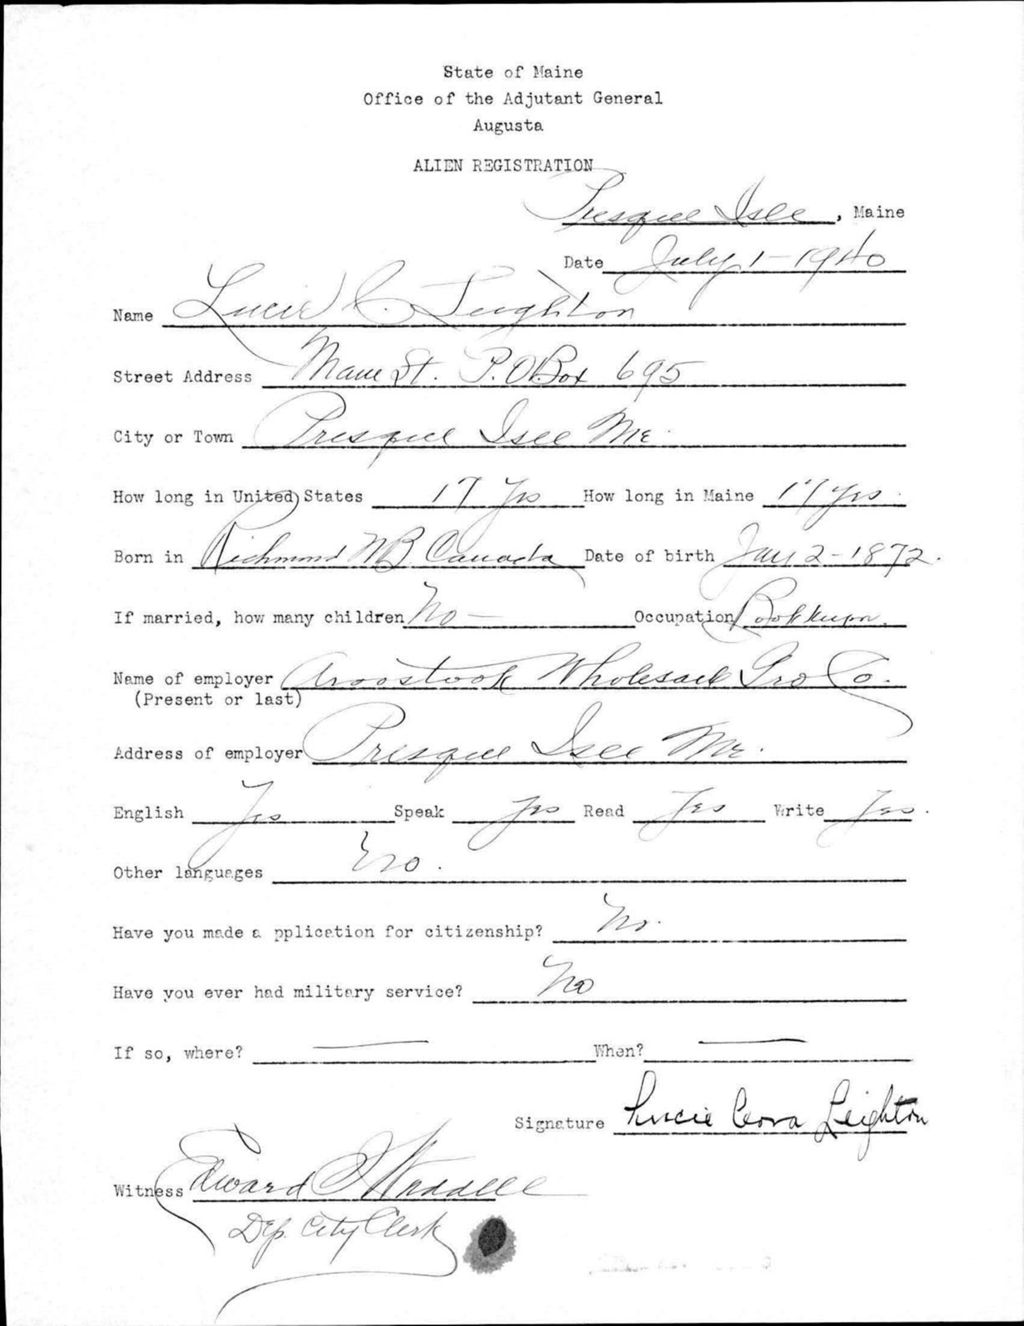 State of Maine
Office of the Adjutant General
Augusta
ALIEN REGISTRATION
Presque Isle, Maine
Date July 1-1940
Name Lucie C. Leighton
Street Address Main St. P.O Box 695
City or Town Presque Isle Me.
How long in United States 17 Yrs How long in Maine 17 yrs.
Born in Richmond NB Canada Date of birth 2-1872.
If married, how many children No — Occupation Bookkeeper.
Name of employer Aroostook Wholesale Gro Co.
(Present or last)
Address of employer Presque Isle Me.
English Yes Speak yes Read Yes Write Yes.
Other languages No.
Have you made a pplication for citizenship? No.
Have you ever had military service? No
If so, where? — When? —
Signature Lucie Leighton
Witness Edward Waddell
Dep. City Clerk